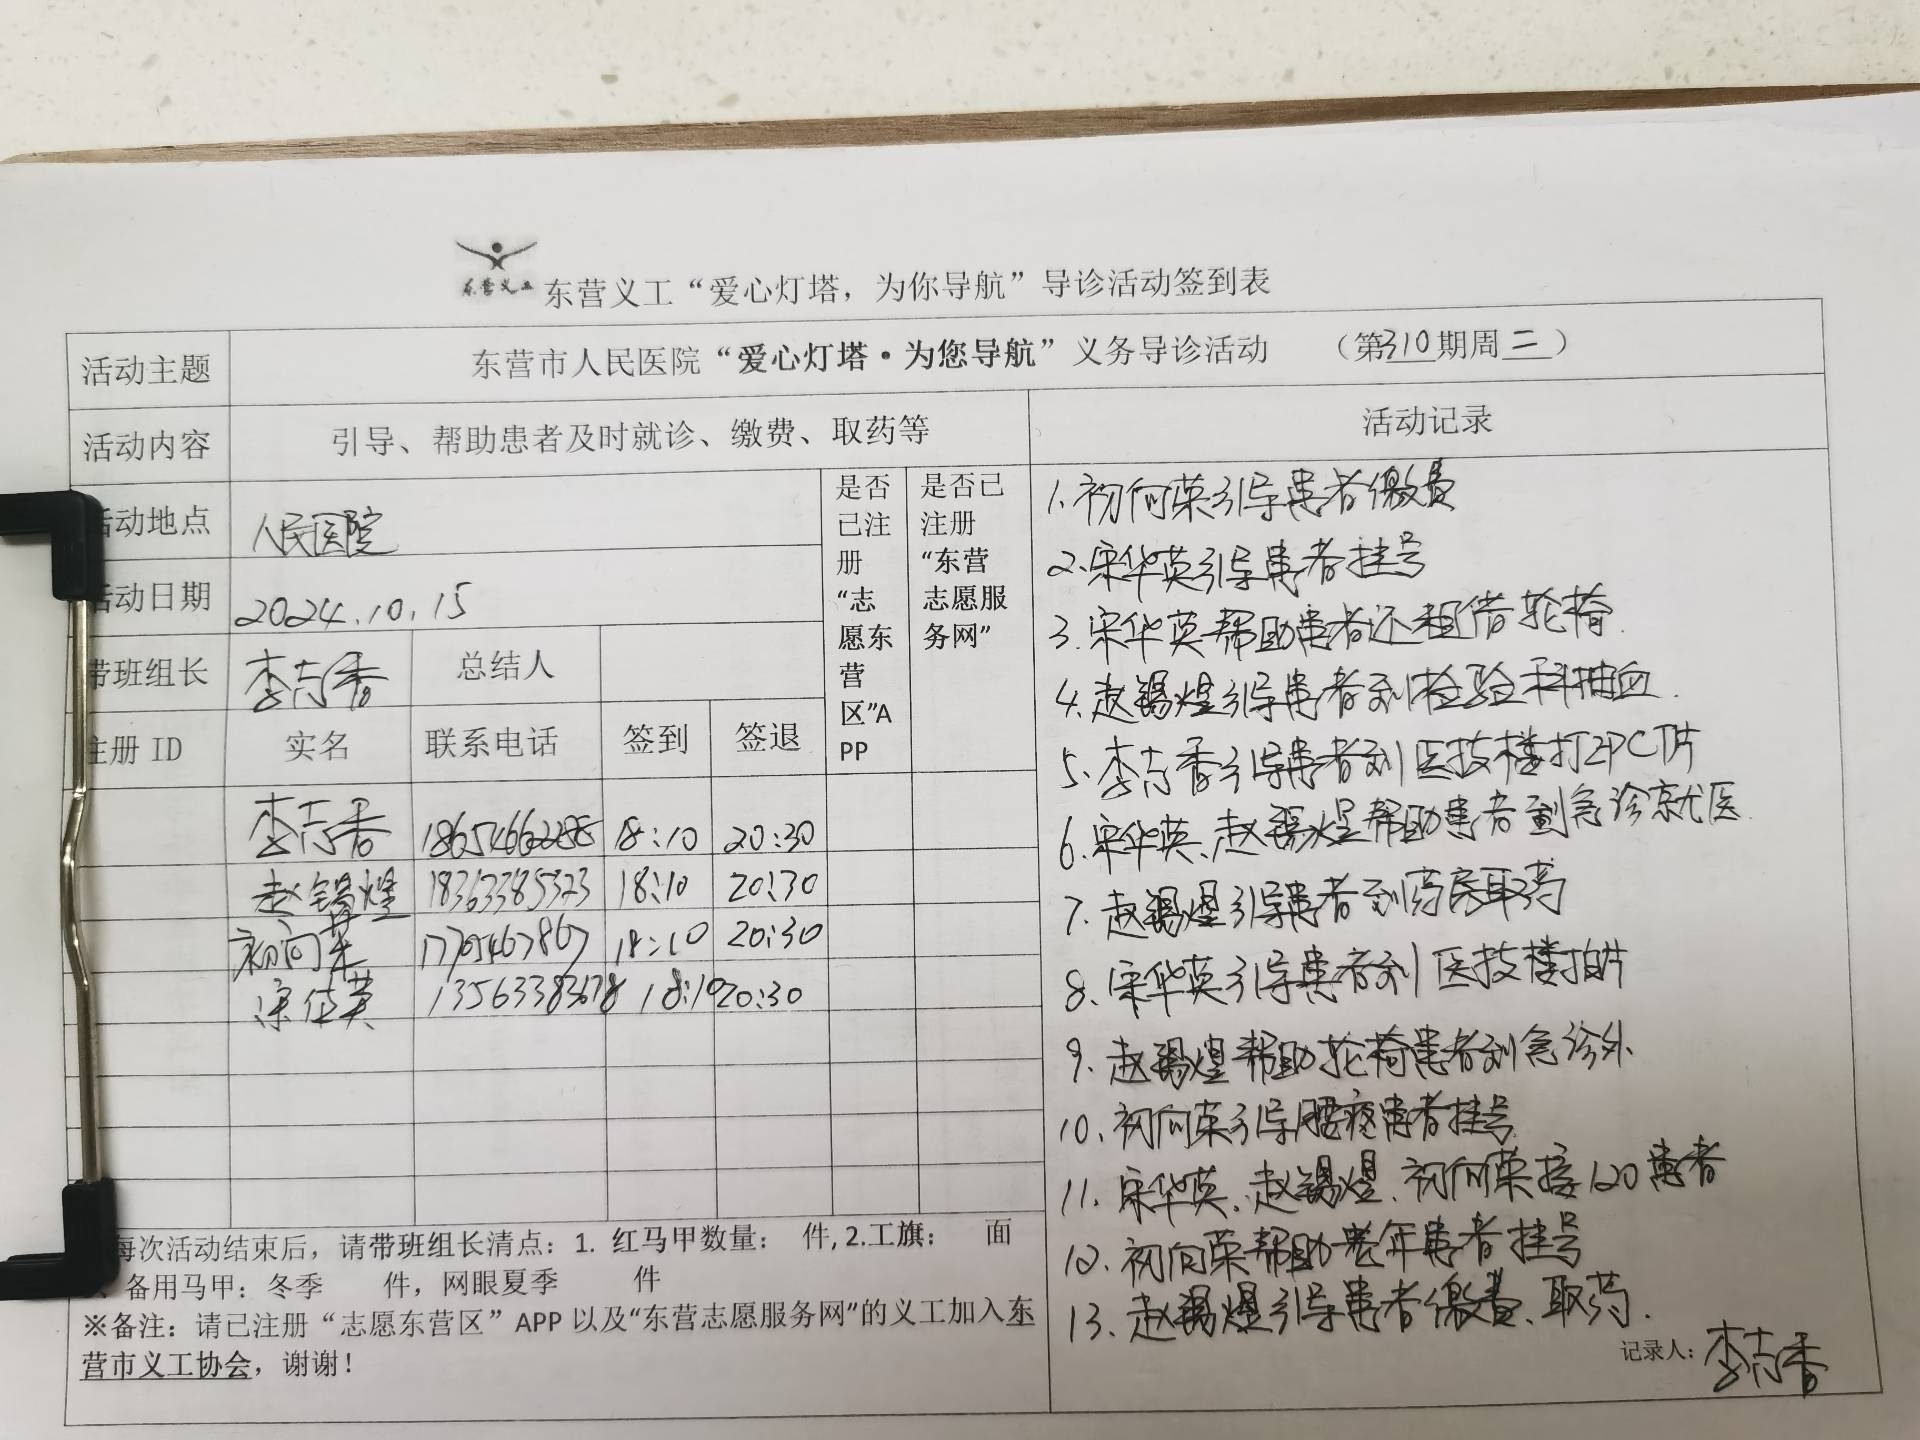 东营义工
东营义工“爱心灯塔，为你导航”导诊活动签到表
活动主题 东营市人民医院“爱心灯塔·为您导航”义务导诊活动 （第310期周二）
活动内容 引导、帮助患者及时就诊、缴费、取药等
活动地点 人民医院
活动日期 2024.10.15
带班组长 李志香 总结人
注册 ID 实名 联系电话 签到 签退
是否
已注
册
“志
愿东
营
区”A
PP
是否已
注册
“东营
志愿服
务网”
李志香 18:10 20:30
赵锡煌 18363385323 18:10 20:30
初向荣 17705467867 18:10 20:30
宋华英 18:10 20:30
每次活动结束后，请带班组长清点：1. 红马甲数量： 件, 2.工旗： 面
备用马甲：冬季 件，网眼夏季 件
※备注：请已注册“志愿东营区”APP 以及“东营志愿服务网”的义工加入东
营市义工协会，谢谢！
活动记录
1.初向荣引导患者缴费
2.宋华英引导患者挂号
3.宋华英帮助患者还租借轮椅.
4.赵锡煌引导患者到检验科抽血.
5.李志香引导患者到医技楼打印CT片
6.宋华英、赵锡煌帮助患者到急诊就医.
7.赵锡煌引导患者到药房取药
8、宋华英引导患者到医技楼拍片
9、赵锡煌帮助轮椅患者到急诊外
10、初向荣引导腰疼患者挂号
11、宋华英、赵锡煌、初向荣接120患者
12、初向荣帮助老年患者挂号
13、赵锡煌引导患者缴费、取药.
记录人：李志香